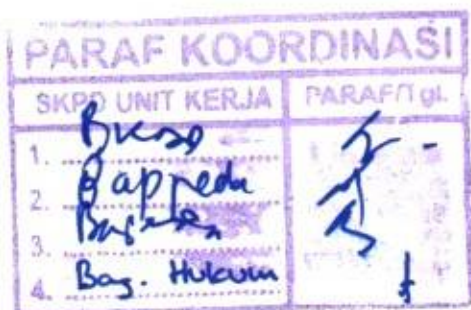 PARAF KOORDINASI
SKPD UNIT KERJA PARAF/Tgl.
1.
2. Bappeda
3.
4. Bag. Hukum